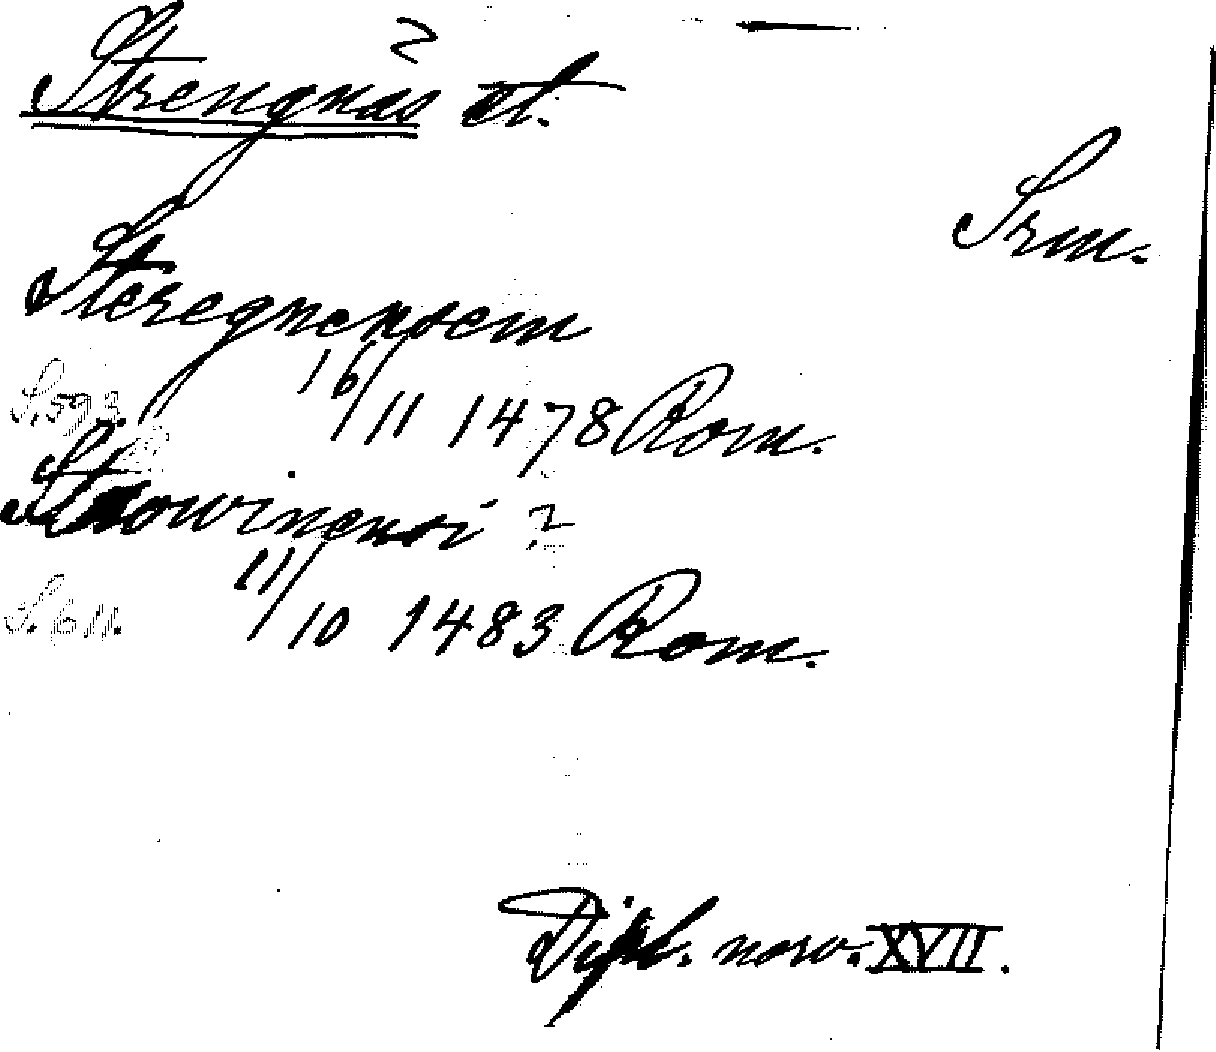 2
Strengnäs st.
Srm.
Steregnensem
S. 593. 16/11 1478 Rom.
Strowinensi ?
S. 611. 11/10 1483 Rom.
Dipl. norv. XVII.